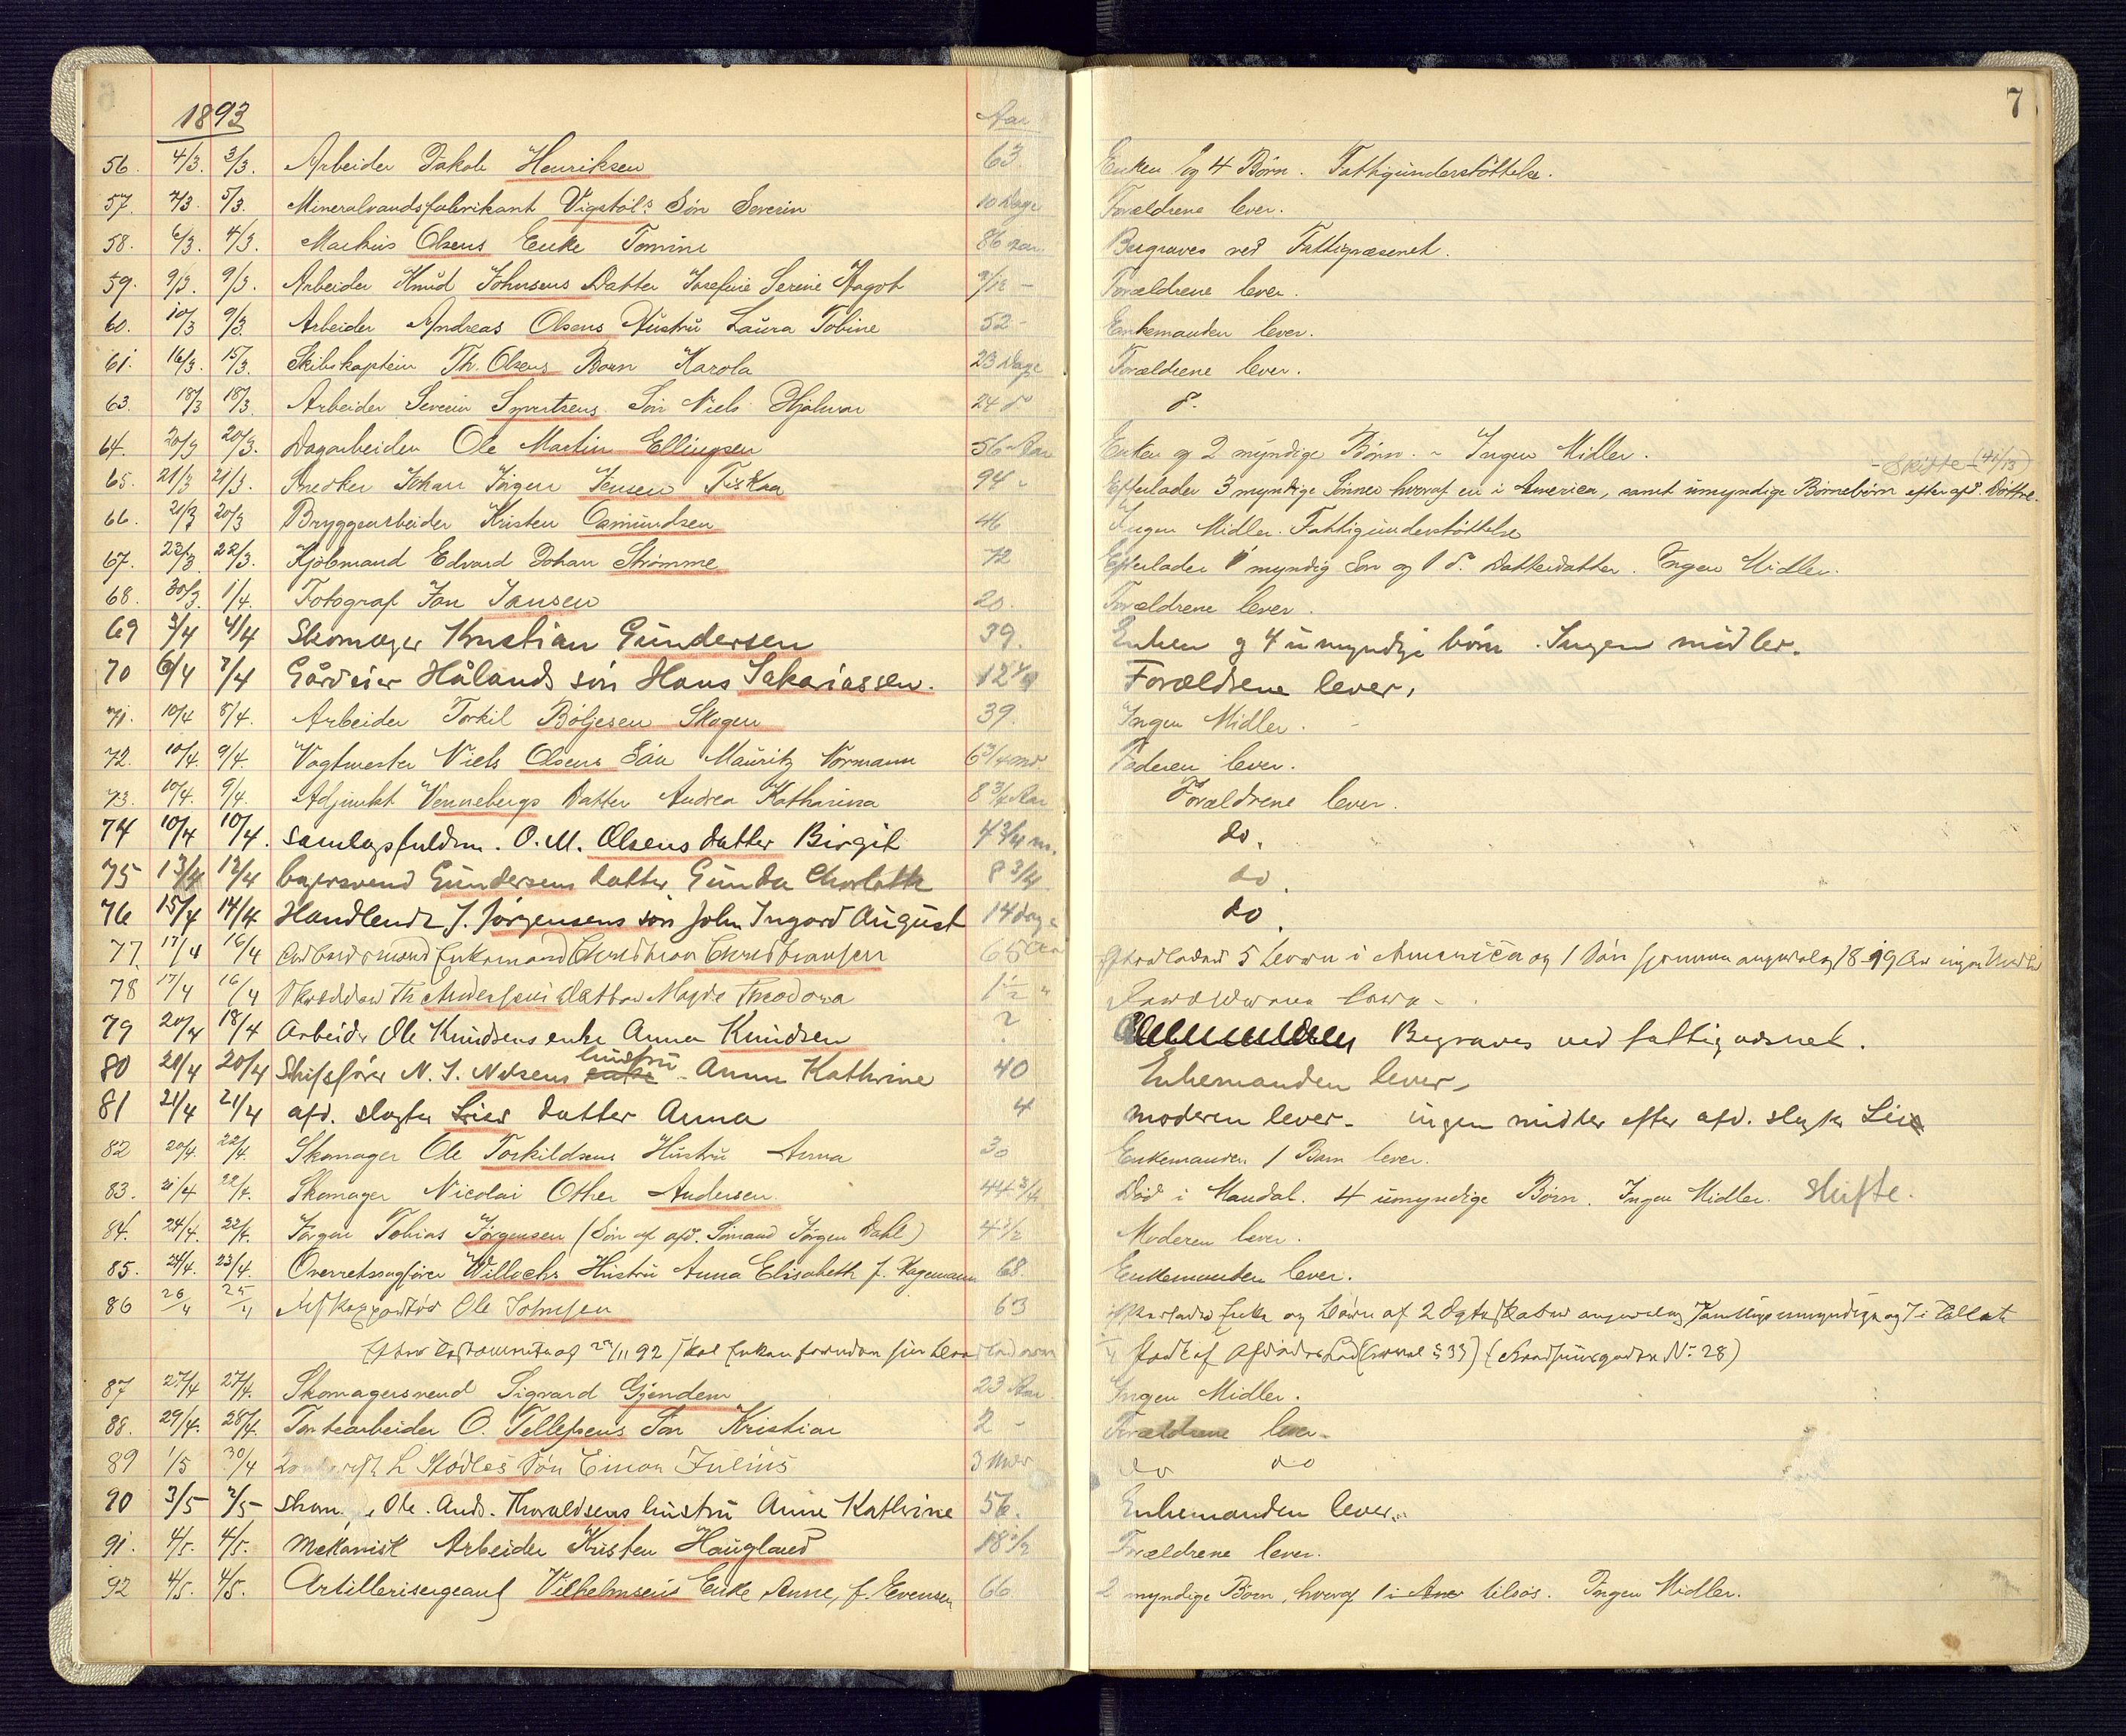 7
1893 Aar
56. 4/3. 3/3. Arbeider Jakob Henriksen 63. Enken og 4 Børn. Fattigunderstøttelse.
57. 7/3. 5/3. Mineralvandsfabrikant Vigstøl's Søn Severin 10 Dage Forældrene lever.
58. 6/3. 4/3. Markus Olsens Enke Tomine 86 Aar Begraves ved Fattigvæsenet.
59. 9/3. 9/3. Arbeider Knud Johnsens Datter Josefine Serine Aagot 9/12 - Forældrene lever.
60. 10/3 9/3. Arbeider Andreas Olsens Hustru Laura Tobine 52 - Enkemanden lever.
61. 16/3. 15/3. Skibskaptein Th. Olsens Barn Karola 23 Dage Forældrene lever.
63. 18/3 18/3. Arbeider Severin Syvertsens Søn Niels Hjalmar 24 do do.
64. 20/3 20/3. Dagarbeider Ole Martin Ellingsen 56 Aar Enken og 2 myndige Børn. - Ingen Midler.
65. 21/3 21/3. Snedker Johan Jörgen Jensen Fiskaa 94 - Efterlader 3 myndige Sønner hvoraf en i America, samt umyndige Børnebørn efter afd. Døttre. - Skifte -
66. 21/3 20/3 Bryggearbeider Kristen Osmundsen 46 Ingen Midler. Fattigunderstøttelse
67. 23/3 22/3. Kjøbmand Edvard Johan Strømme 72 Efterlader 1 myndig Søn og 1 do. Datterdatter. Ingen Midler.
68. 30/3. 1/4. Fotograf Jan Jansen 20. Forældrene lever.
69 3/4 4/4 Skomager Kristian Gundersen 39. Enken og 4 umyndige børn. Ingen midler.
70 6/4 7/4 Gårdeier Hålands søn Hans Sakariassen. 12 Forældrene lever,
71. 10/4 8/4. Arbeider Torkil Böljesen Skogen 39. Ingen Midler.
72. 10/4. 9/4. Vagtmester Niels Olsens Søn Mauritz Normann 6 3/4 md. Faderen lever.
73. 10/4. 9/4. Adjunkt Vennebergs Datter Andrea Katharina 8 3/4 Aar Forældrene lever.
74 10/4 10/4. Samlagsfuldm. O. M. Olsens datter Birgit 4 3/4 m. do.
75 13/4 12/4 bagersvend Gundersens datter Gunda Charlotte 8 3/4 do.
76 15/4 14/4 Handlende J. Jørgensens søn John Ingvard August 14 dage do
77. 17/4 16/4 Enkemand Christian Christiansen 65 Aar Efterlader 5 børn i America og 1 Søn hjemme 18-19 Aar ingen Midler
78 17/4 16/4 Skrædder Th Andersens datter Magda Theodora 1 1/2 " Forældrene lever.
79 20/4 18/4 Arbeider Ole Knudsens enke Anna Knudsen ? Begraves ved fattigvæsnet.
80 20/4 20/4 Skibsfører N. J. Nilsens enke hustru Anne Kathrine 40 Enkemanden lever.
81 21/4 21/4 afd. slagter Lies datter Anna 4 moderen lever. ingen midler efter afd. slagter Lie
82 20/4. 22/4. Skomager Ole Torkildsens Hustru Anna 30 Enkemanden 1 Barn lever.
83. 21/4 22/4. Skomager Nicolai Other Andersen 44 3/4 Død i Mandal. 4 umyndige Børn. Ingen Midler. Skifte.
84. 24/4. 22/4. Jørgen Tobias Jørgensen (Søn af afd. Sömand Jörgen Dahl) 4 1/2 Moderen lever.
85. 24/4. 23/4. Overretssagfører Willochs Hustru Anna Elisabeth f. Hagemann 68. Enkemanden lever.
86 26/4 25/4 Ole Johnsen 63 Efterlader Enke og Børn af 2 Ægteskaber
Efter Testamente af 22/11 92 skal Enken (Arvel § 33) (No 28)
87 27/4 27/4. Skomagersvend Sigvard Gjendem 23 Aar Ingen Midler.
88. 29/4. 28/4. Tomtearbeider O. Tellefsens Søn Kristian 2 - Forældrene lever.
89 1/5 30/4 L Stödles Søn Einar Julius 3 Mdr do do
90 3/5 2/5 Skom. Ole. Ands. Thorvaldsens hustru Anne Kathrine 56. Enkemanden lever.
91. 4/5. 4/5. Mekanisk Arbeider Kristen Haugland 18 1/2 Forældrene lever.
92 4/5. 4/5. Artillerisergeant Vilhelmsens Enke Anne, f. Evensen 66 2 myndige Børn, hvoraf 1 i Amer tilsøs. Ingen Midler.